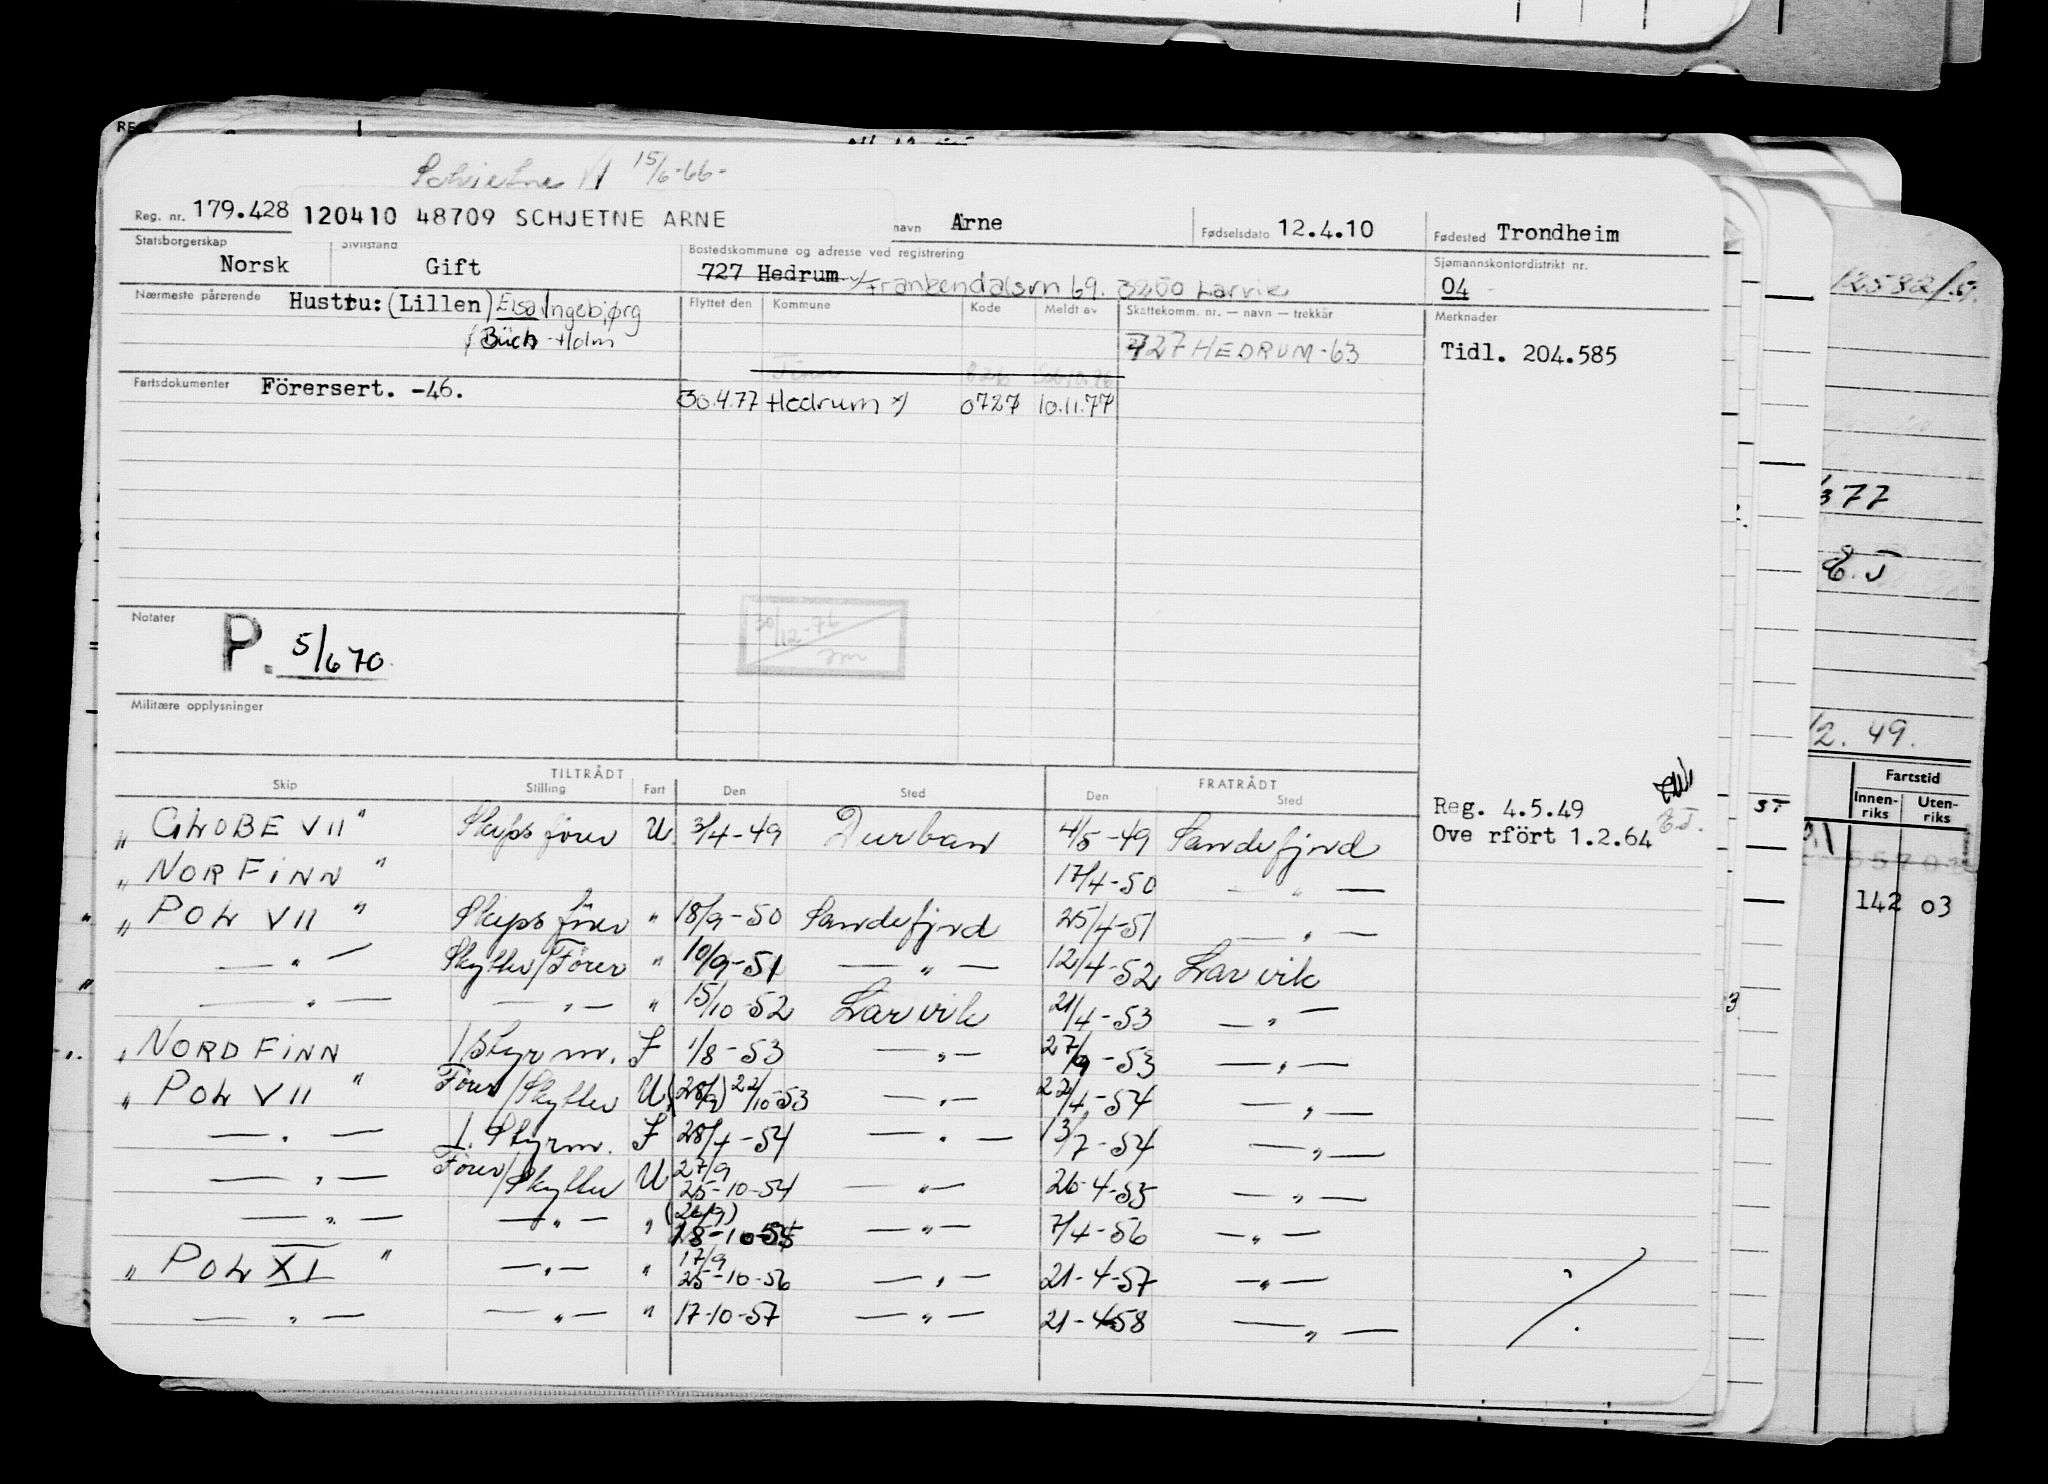 Schjetne A 15/6-66-
Reg. nr. 179.428 120410 48709 SCHJETNE ARNE navn Arne Fødselsdato 12.4.10 Fødested Trondheim
Statsborgerskap Norsk Sivilstand Gift Bostedskommune og adresse ved registrering 727 Hedrum x/ Frankendalsvn 69. 3250 Larvik Sjømannskontordistrikt nr. 04
Nærmeste pårørende Hustru: (Lillen) Elsa Ingebjørg Flyttet den Kommune Kode Meldt av Skattekomm. nr. — navn — trekkår Merknader
f Büch-Holm 727 HEDRUM-63 Tidl. 204.585
Fartsdokumenter Förersert. -46.
30.4.77 Hedrum x/ 0727 10.11.77
Notater P. 5/6 70.
30/12-76
Militære opplysninger
TILTRÅDT FRATRÅDT
Skip Stilling Fart Den Sted Den Sted
" GLOBE VII " Skipsfører U. 3/4-49 Durban 4/5-49 Sandefjord Reg. 4.5.49
Ove rfört 1.2.64 E.J.
" NORFINN " 17/4-50 — " —
" POL VII " Skipsfører " 18/9-50 Sandefjord 25/4-51 — " —
— " — Skytter/Förer " 10/9-51 — " — 12/4-52 Larvik
— " — — " — " 15/10-52 Larvik 21/4-53 — " —
" NORDFINN 1 Styrm. I 1/8-53 — " — 27/9-53 — " —
" POL VII " Förer/Skytter U (28/9) 22/10-53 — " — 22/4-54 — " —
— " — 1. Styrm. I 28/4-54 — " — 13/7-54 — " —
— " — Förer/Skytter U 27/9 25-10-54 — " — 26-4-55 — " —
— " — — " — " (26/9) 18-10-55 — " — 7/4-56 — " —
" POL XI " — " — " 17/9 25-10-56 — " — 21-4-57 — " —
— " — — " — " 17-10-57 — " — 21-4-58 — " —
377
E.J
12. 49.
Fartstid
Innen-riks Uten-riks
142 03